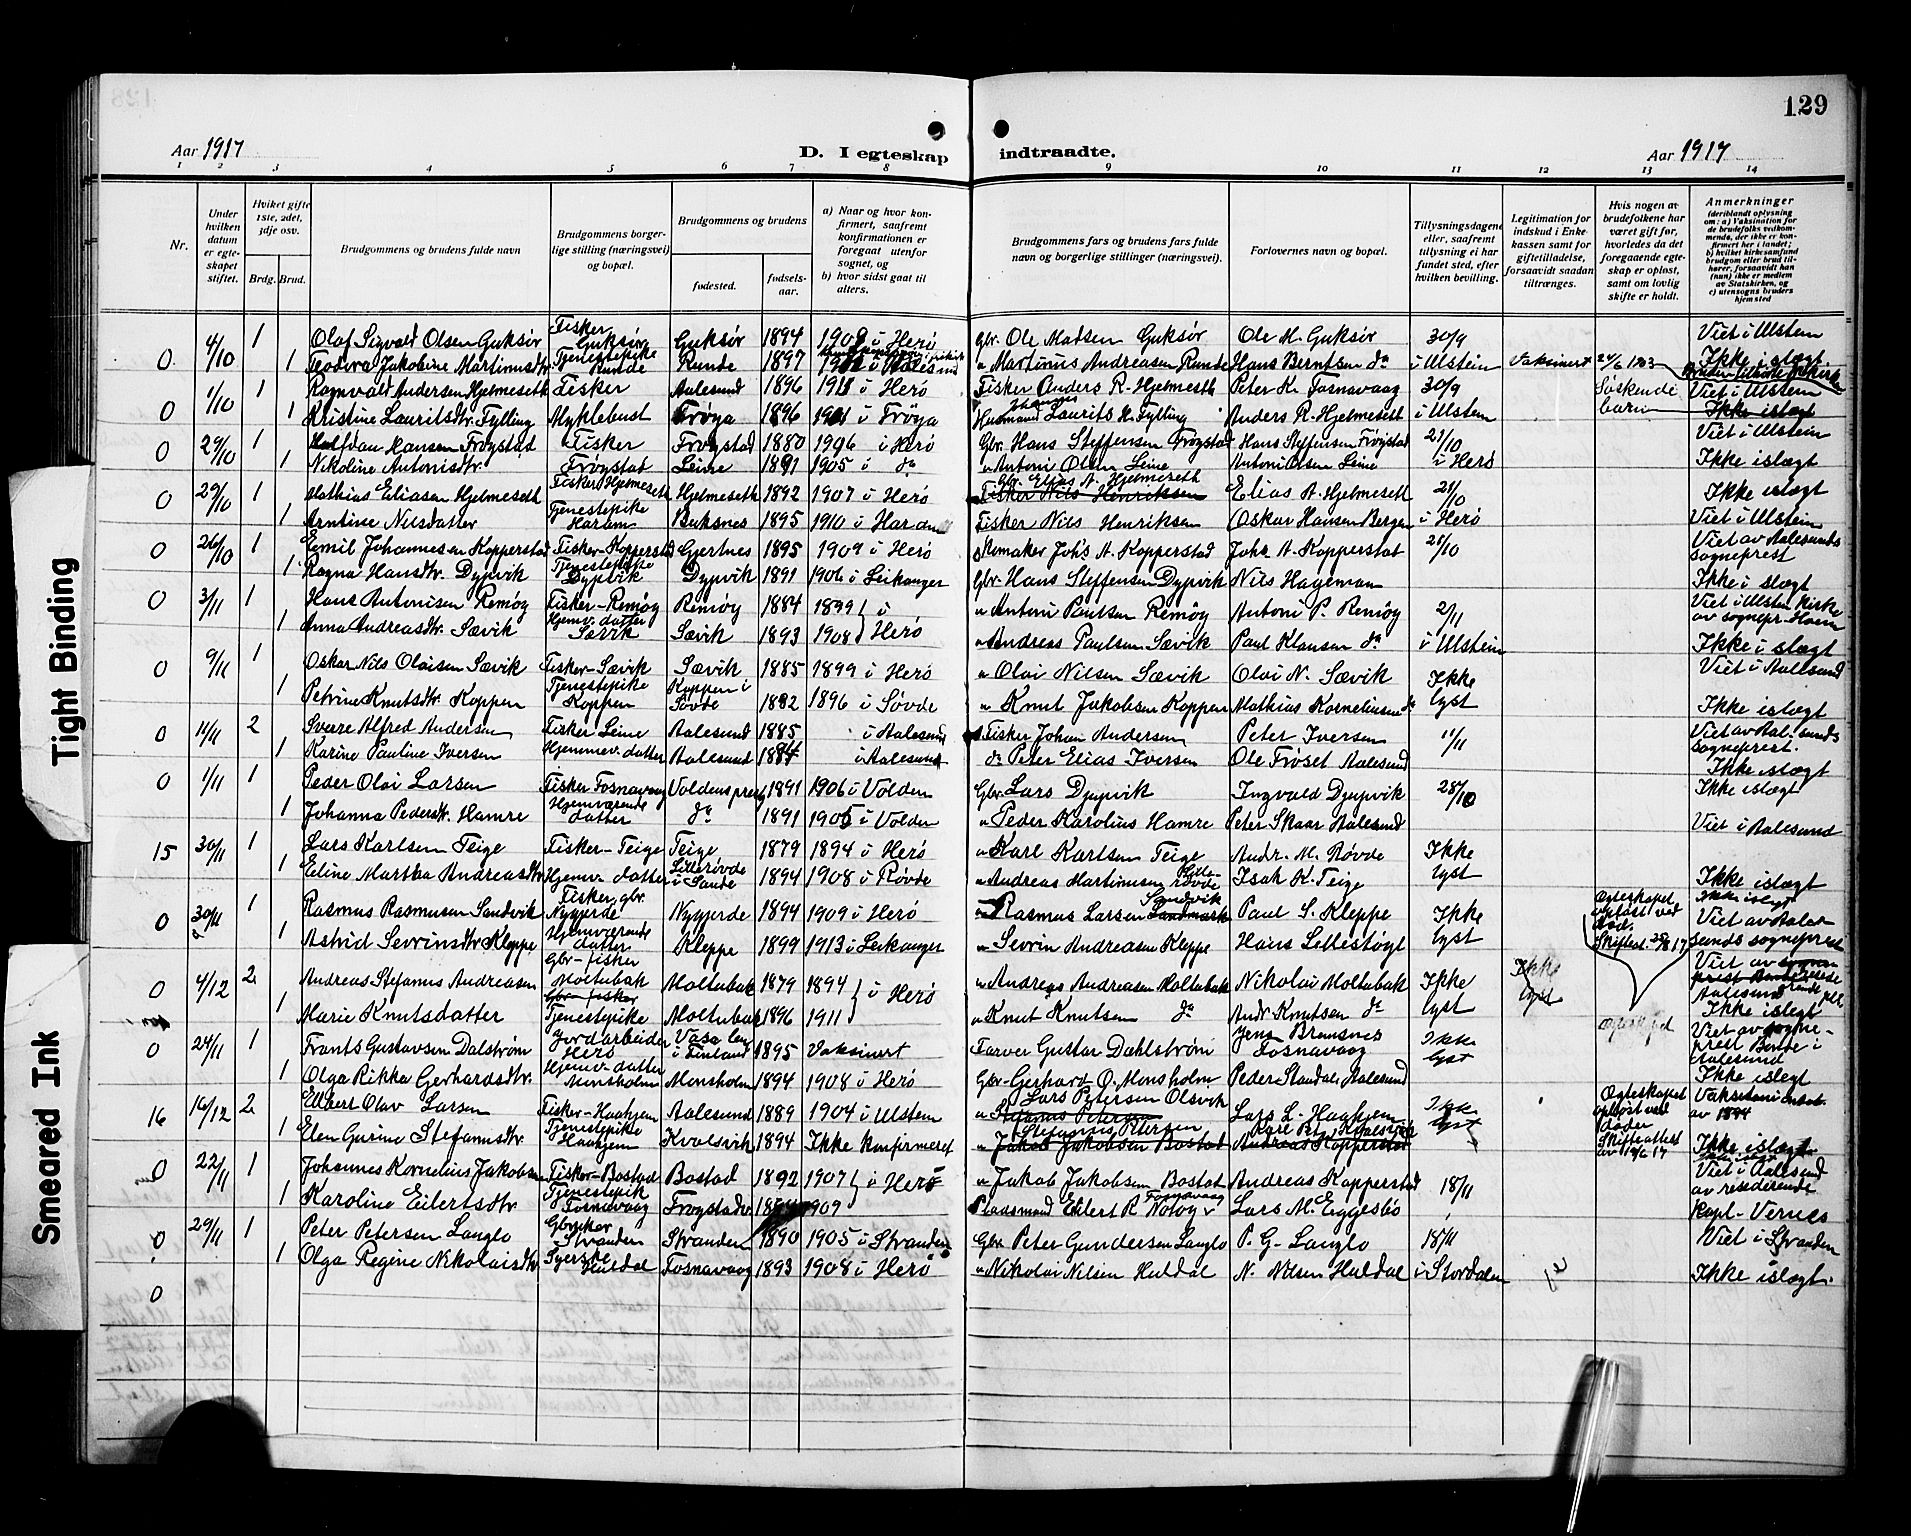 129
Aar 1917
D. I egteskap indtraadte.
Aar 1917
1 2 3 4 5 6 7 8 9 10 11 12 13 14
Nr.
Under hvilken datum er egteskapet stiftet.
Hviket gifte 1ste, 2det, 3dje osv.
Brdg. Brud.
Brudgommens og brudens fulde navn
Brudgommens borgerlige stilling (næringsvei) og bopæl.
Brudgommens og brudens
fødested.
fødselsaar.
a) Naar og hvor konfirmert, saafremt konfirmationen er foregaat utenfor sognet, og b) hvor sidst gaat til alters.
Brudgommens fars og brudens fars fulde navn og borgerlige stillinger (næringsvei).
Forlovernes navn og bopæl.
Tillysningsdagene eller, saafremt tillysning ei har fundet sted, efter hvilken bevilling.
Legitimation for indskud i Enkekassen samt for giftetilladelse, forsaavidt saadan tiltrænges.
Hvis nogen av brudefolkene har været gift før, hvorledes da det foregaaende egteskap er opløst, samt om lovlig skifte er holdt.
Anmerkninger (deriblandt oplysning om: a) Vaksination for de brudefolks vedkommende, der ikke er konfirmert her i landet; b) hvilket kirkesamfund brudgom eller brud tilhører, forsaavidt han (hun) ikke er medlem av Statskirken, og c) utensogns bruders hjemsted
4/10 1 Olaf Sigvald Olsen Guksør Fisker Guksør Guksør 1894 1909 i Herö Gbr. Ole Madsen Guksør Ole M. Guksør 30/9 Viet i Ulstein
0 1 Teodora Jakobine Martinusdtr. Tjenestepike Runde Runde 1897 i Aalesund " Martinus Andreasen Runde Hans Berntsen do i Ulstein Vaksinert Ikke i slegt
1/10 1 Ragnvald Andersen Hjelmeseth Fisker Aalesund 1896 1911 i Herö Fisker Anders R. Hjelmeseth Peter K. Fosnavaag 30/9 Søskende Viet i Ulstein
0 1 Kristine Lauritsdtr. Fylling Myklebust Frøya 1896 i Fröya Husmand Laurits H. Fylling Anders R. Hjelmeseth i Ulstein barn Ikke i slegt
29/10 1 Halfdan Hansen Frøystad Fisker Frøystad 1880 1996 i Herö Gbr. Hans Steffensen Frøystad Hans Steffensen Frøystad 21/10 Viet i Ulstein
0 1 Nikoline Antonisdtr. Frøystad Leine 1891 1905 i do " Antoni Olsen Leine Antoni Olsen Leine i Herö Ikke i slegt
29/10 1 Mathias Eliasen Hjelmeseth Fisker Hjelmeseth Hjelmeseth 1892 1907 i Herö Gbr. Elias A. Hjelmeseth Fisker Nils Henriksen Elias A. Hjelmeseth 21/10 Ikke i slegt
0 1 Arntine Nilsdatter Tjenestepike Haram Buksnes 1895 1910 i Haram Fisker Nils Henriksen Oskar Hansen Bergen i Herö Viet i Ulstein
26/10 1 Emil Johannesen Kopperstad Fisker-Kopperstad Gjertnes 1895 1909 i Herö Skomaker Johs A. Kopperstad Johs A. Kopperstat 21/10 Viet av Aalesunds sogneprest
0 1 Ragna Hansdtr. Dypvik Tjenestepike Dypvik Dypvik 1891 1906 i Leikanger Gbr. Hans Steffensen Dypvik Nils Hageman Ikke i slegt
3/11 1 Hans Antonisen Remöy Fisker-Remöy Remöy 1884 1899 i Herö " Antoni Paulsen Remöy Antoni P. Remöy 2/11 Viet i Ulsten kirke av sognepr. Hoem
0 1 Anna Andreasdtr. Sævik Hjemv. datter Sævik Sævik 1893 1908 " Andreas Paulsen Sævik Paul Klausen do i Ulstein Ikke i slegt
9/11 1 Oskar Nils Olaisen Sævik Fisker-Sævik Sævik 1885 1899 i Herö " Olai Nilsen Sævik Olai N. Sævik Ikke Viet i Aalesund
0 1 Petrine Knutsdtr. Koppen Tjenestepike Koppen Koppen i Søvde 1892 1896 i Søvde " Knut Jakobsen Koppen Mathias Korneliusen do lyst Ikke i slegt
11/11 2 Sverre Alfred Andersen Fisker Leine Aalesund 1885 i Aalesund Fisker Johan Andersen Peter Iversen 11/11 Viet av Aalesunds sogneprest.
0 1 Karine Pauline Iversen Hjemmev. datter Aalesund 1884 i Aalesund do Peter Elias Iversen Ole Frøset Aalesund Ikke i slegt
1/11 1 Peder Olai Larsen Fisker Fosnavaag Voldens preg. 1891 1906 i Volden Gbr. Lars Djupvik Ingvald Djupvik 28/10 Ikke i slegt
0 1 Johanna Pedersdtr. Hamre Hjemværende datter do 1891 1905 i Volden " Peder Karolius Hamre Peter Skaar Aalesund Viet i Aalesund
30/11 1 Lars Karlsen Teige Fisker-Teige Teige 1879 1894 i Herö " Karl Karlsen Teige Andr. M. Røvde Ikke
15 1 Eline Martha Andreasdtr Hjemv. datter Lillerøvde i Sande 1894 1908 i Røvde " Andreas Martinusen Lillerøvde Isak K. Teige lyst Ikke i slegt
30/11 1 Rasmus Rasmusen Sandvik Fisker, gbr. Nygjerde Nygjerde 1894 1909 i Herö Rasmus Larsen Sandvik Landmark Paul S. Kleppe Ikke Ægteskapet opløst ved død. Ikke i slegt Viet av Aalesunds sogneprest
0 1 Astrid Sevrinsdtr. Kleppe Hjemværende datter Kleppe 1899 1913 i Leikanger " Sevrin Andreasen Kleppe Hans Lillestøyl lyst Skifteat.
4/12 2 Andreas Stefanus Andreasen Gbr-fisker Moltubak Moltubak 1879 1894 i Herö " Andreas Andreasen Moltubak Nikolai Moltubak Ikke Ikke lyst Viet av Aalesund
0 1 Marie Knutsdatter Gbr-fisker Tjenestepike Moltubak 1896 1911 " Knut Knutsen do Andr. Knutsen do lyst Ikke i slegt
24/11 1 Frants Gustavsen Dalström Jordarbeider Herö Vasa len i Finland 1895 Vaksinert Farver Gustav Dæhlström Jens Bransnes Fosnavaag Ikke lyst Viet av sogneprest Bonde i Aalesund
0 1 Olga Rikka Gerhardsdtr. Hjemv. datter Monsholm Monsholm 1894 1908 i Herö Gbr. Gerhard O. Monsholm Peder Standal, Aalesund Ikke i slegt
16/12 2 Elbert Olav Larsen Fisker-Haahjem Aalesund 1889 1904 i Ulstein " Lars Petersen Olsvik Stefanus Petersen Lars L. Haahjem Ikke lyst Ægteskapet opløst ved døden Skifteattest av 19/6 17 av 1894
16 1 Elen Gurine Stefanusdtr. Tjenestepike Haahjem Kvalsvik 1894 Ikke konfirmeret Stefanus Petersen " Jakob Jakobsen Bostad Andreas Kopperstad Ikke i slegt
22/11 1 Johannes Kornelius Jakobsen Fisker-Bostad Bostad 1892 1907 i Herö " Jakob Jakobsen Bostad Andreas Kopperstad 18/11 Viet i Aalesund av residerende kapl. Vernes
0 1 Karoline Eilertsdtr. Tjenestepik Fosnavaag Frøystadv. 1909 Pladsmand Eilert R. Notøy Fosnavaag Lars M. Eggesbö
29/11 1 Peter Petersen Langlo Gbruker Stranden Stranden 1890 1905 i Stranden Gbr. Peter Gundersen Langlo P. G. Langlo 18/11 Viet i Stranden
0 1 Olga Regine Nikolaisdtr. Syerske Huldal Fosnavaag 1893 1908 i Herö " Nikolai Nilsen Huldal N. Nilsen Huldal i Stordalen Ikke i slegt.
0
Tight Binding
Smeared Ink